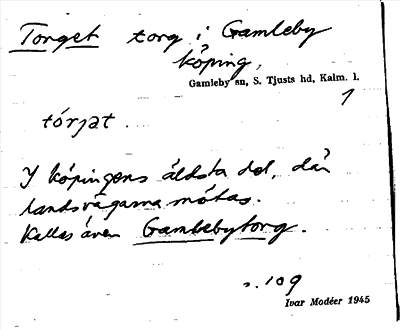 Torget torg i Gamleby
köping,
Gamleby sn, S. Tjusts hd, Kalm. l.
1
tórjat.
I köpingens äldsta del, där
landsvägarna mötas.
Kallas även Gamlebytorg.
s. 109
Ivar Modéer 1945